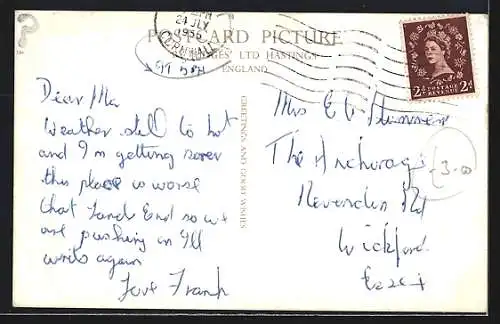 24 JLY
1956
CORNWALL
POSTCARD PICTURE
LTD HASTINGS
ENGLAND
2d POSTAGE REVENUE 2d
GREETINGS AND GOOD WISHES
Dear Ma
Weather still to hot
and I'm getting sorer
this place is worse
that Lands End so we
are pushing on I'll
write again
Love Frank
Mrs E
The Anchorage
Rd
Wickford
Essex
£3-00